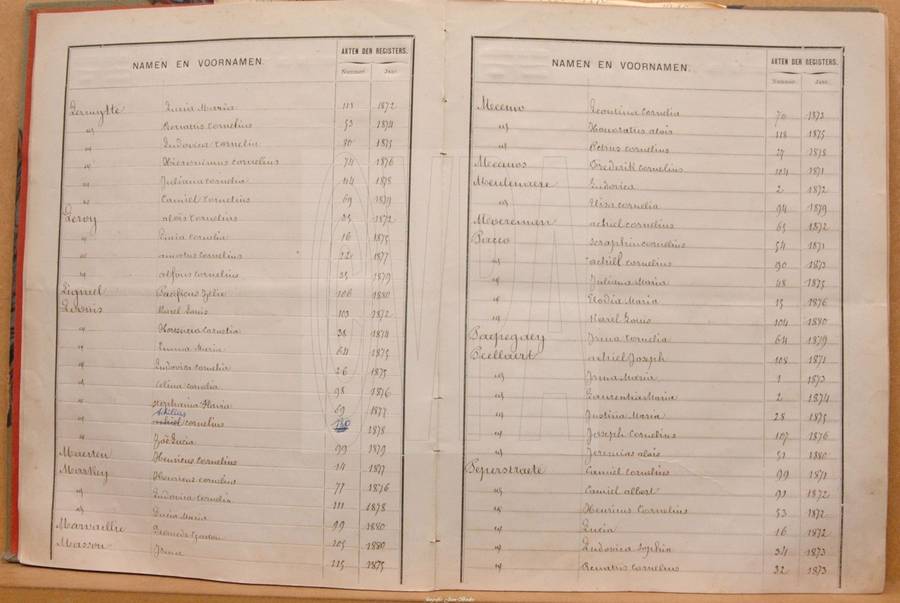 NAMEN EN VOORNAMEN. AKTEN DER REGISTERS.
Nummer Jaar
Lermytte Lucia Maria 113 1872
id Renatus Cornelius 53 1874
id Ludovica Cornelia 80 1875
id Hieronimus Cornelius 74 1876
id Juliana Cornelia 44 1878
id Camiel Cornelius 69 1879
Leroy aloïs Cornelius 25 1872
id Emia Cornelia 16 1875
id amatus Cornelius 22 1877
id alfons Cornelius 25 1879
Lignel Pacificus Felix 106 1880
Loonis Karel Louis 103 1872
id Hortencia Cornelia 38 1874
id Emma Maria 64 1875
id Ludovica Cornelia 26 1875
id Celina Cornelia 98 1876
id Stephania Maria 69 1877
id Achilius Cornelius 120 1878
id Zoë Lucia 99 1879
Maerten Henricus Cornelius 14 1877
Markey Henricus Cornelius 77 1876
id Ludovica Cornelia 111 1878
id Lucia Maria 99 1880
Marvaillie 105 1880
Masson Irena 115 1875
NAMEN EN VOORNAMEN. AKTEN DER REGISTERS.
Nummer Jaar
Meeuw Leontina Cornelia 70 1873
id Honoratus aloïs 118 1875
id Petrus Cornelius 27 1878
Meeuws Frederik Cornelius 104 1871
Meulemeere Ludovica 2 1872
id Elisa Cornelia 94 1879
Mevereman achiel Cornelius 65 1872
Pacco Seraphin Cornelius 54 1871
id achiel Cornelius 90 1873
id Juliana Maria 48 1875
id Elodia Maria 15 1876
id Karel Louis 104 1880
Paepegaey Irma Cornelia 64 1879
Peellaert achiel Joseph 108 1871
id Irma Maria 1 1873
id Laurentia Maria 2 1874
id Justina Maria 28 1875
id Joseph Cornelius 107 1876
id Jeremias aloïs 51 1880
Peperstraete Camiel Cornelius 99 1871
id Camiel albert 91 1872
id Henricus Cornelius 53 1872
id Lucia 16 1872
id Ludovica Sophia 34 1873
id Renatus Cornelius 32 1873